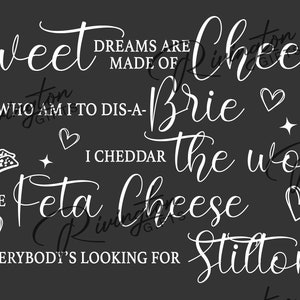 weet DREAMS ARE MADE OF Chee
WHO AM I TO DIS-A- Brie
I CHEDDAR The wo
E Feta Cheese
ERYBODY'S LOOKING FOR Stilton
Rivington